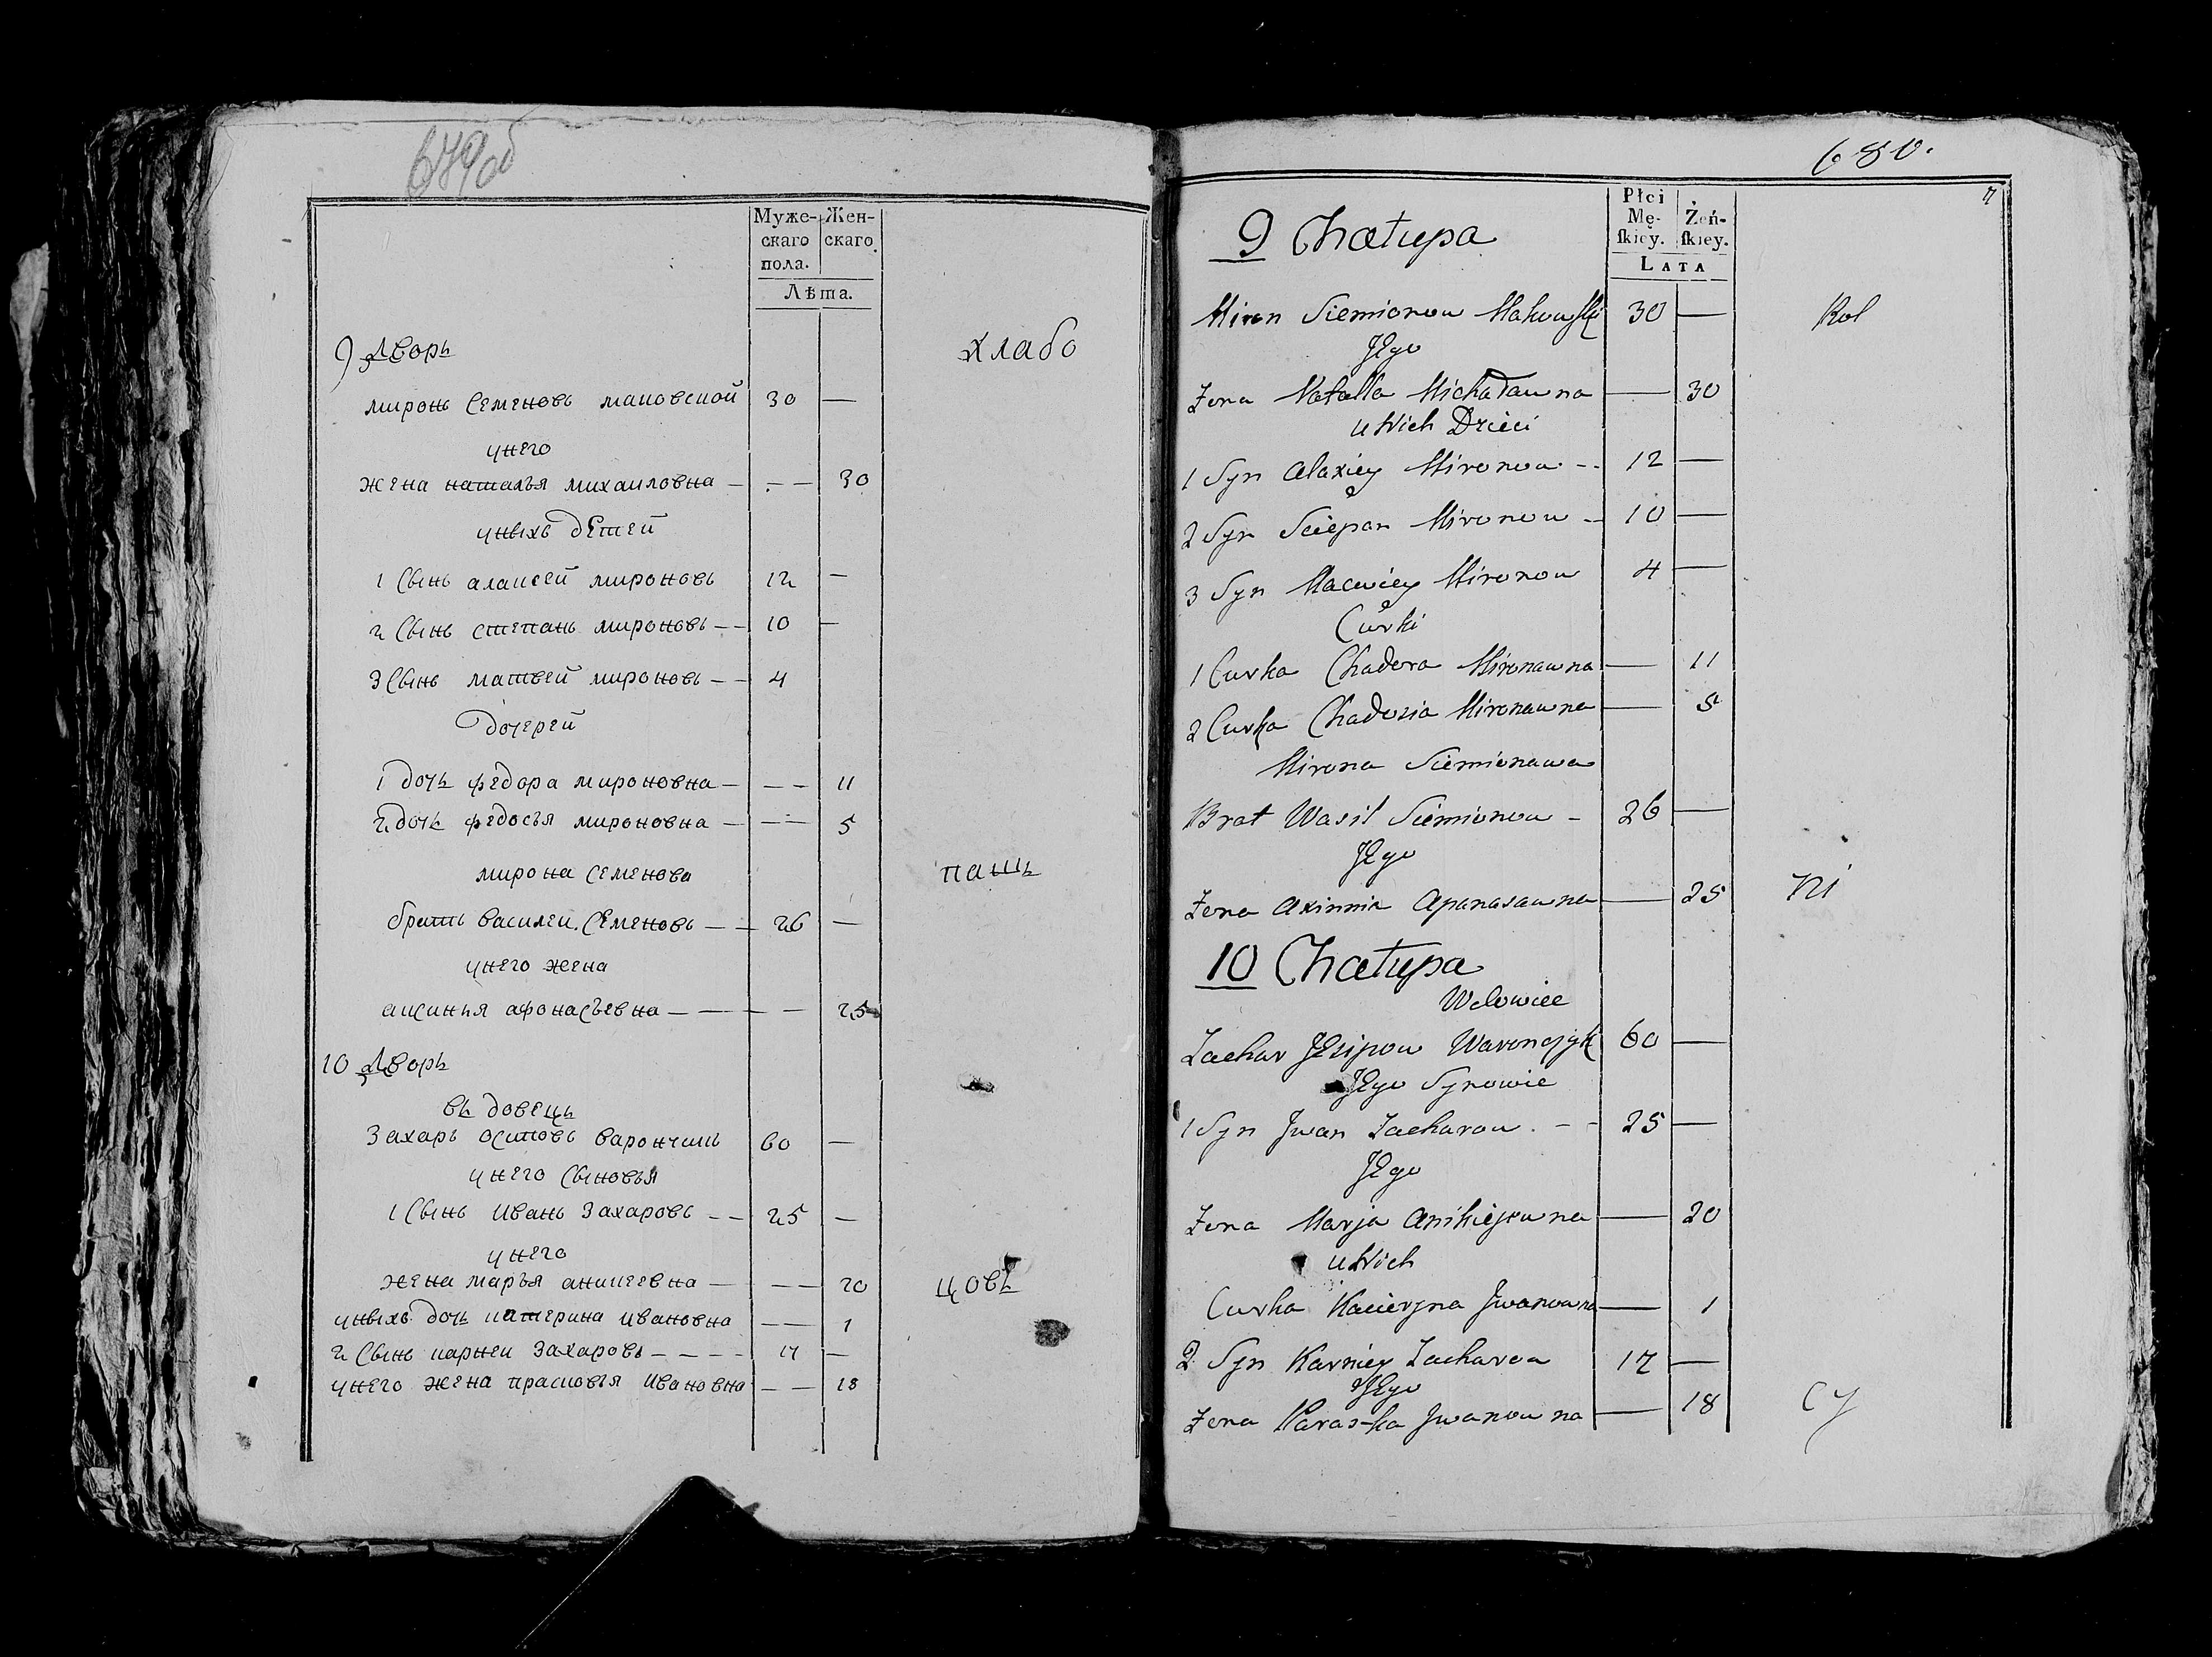 679об
Муже- Жен-
скаго скаго
пола.
Лѣта.
9 Дворъ хлабо
миронъ Семеновъ маковской 30 —
унего
жена наталья михаиловна — — 30
унвихъ детей
1 Сынъ алаксей мироновъ 12 —
2 Сынъ степанъ мироновъ — 10 —
3 Сынъ матвей мироновъ — 4
дочерей
1 дочь федора мироновна — — 11
2 дочь федосья мироновна — — 5
мирона Семенова пашь
братъ василеи Семеновъ — 26 —
унего жена
аксинья афонасьевна — — 25
10 Дворъ
въ довецъ
Захаръ осиповъ варончикъ 60 —
унего Сыновья
1 Сынъ иванъ Захаровъ — 25 —
унего
жена марья аникеевна — — 20 цовъ
унвихъ дочь катерина ивановна — 1
2 Сынъ карнеи Захаровъ — 17 —
унего жена прасковья ивановна — 18
680.
Płci
Mę- Żeń-
skiey. skiey.
LATA
7
9 Chałupa
Miron Siemionow Makowski 30 — Rol
JEgo
Zona Natalla Michaławna — 30
u Nich Dzieci
1 Syn Alaxiey Mironow -- 12 —
2 Syn Sciepan Mironow -- 10 —
3 Syn Maciwiey Mironow 4 —
Curki
1 Curka Chadora Mironawna — 11
2 Curka Chadosia Mironawna — 5
Mirona Siemionawa
Brat Wasil Siemionow - 26 —
JEgo
Zona Axinnia Apanasawna — 25 ni
10 Chałupa
Wdowiec
Zachar JEsipow Waronczyk 60 —
JEgo Synowie
1 Syn Jwan Zacharow. - - 25 —
JEgo
Zona Marja Anikiejowna — 20
u Nich
Curka Kacieryna Jwanowna — 1
2 Syn Karniey Zacharow 17 —
JEgo
Zona Paraska Jwanowna — 18 cy